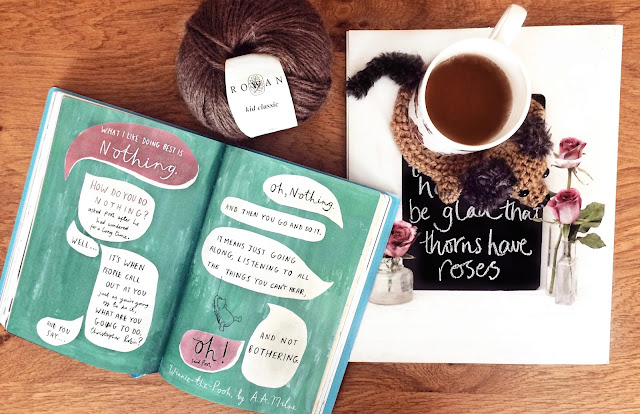 WHAT I LIKE DOING BEST IS
Nothing.
HOW DO YOU DO
NOTHING?
asked Pooh after he
had wondered
for a long time.
WELL...
IT'S WHEN
PEOPLE CALL
OUT AT YOU
just as you're going
off to do it,
WHAT ARE YOU
GOING TO DO,
Christopher Robin?
AND YOU
SAY...
Oh, Nothing.
AND THEN YOU GO AND DO IT.
IT MEANS JUST GOING
ALONG, LISTENING TO ALL
THE THINGS YOU CAN'T HEAR,
AND NOT
BOTHERING.
Oh!
said Pooh.
Winnie-the-Pooh, by A.A. Milne
ROWAN
kid classic
be glad that
thorns have
roses